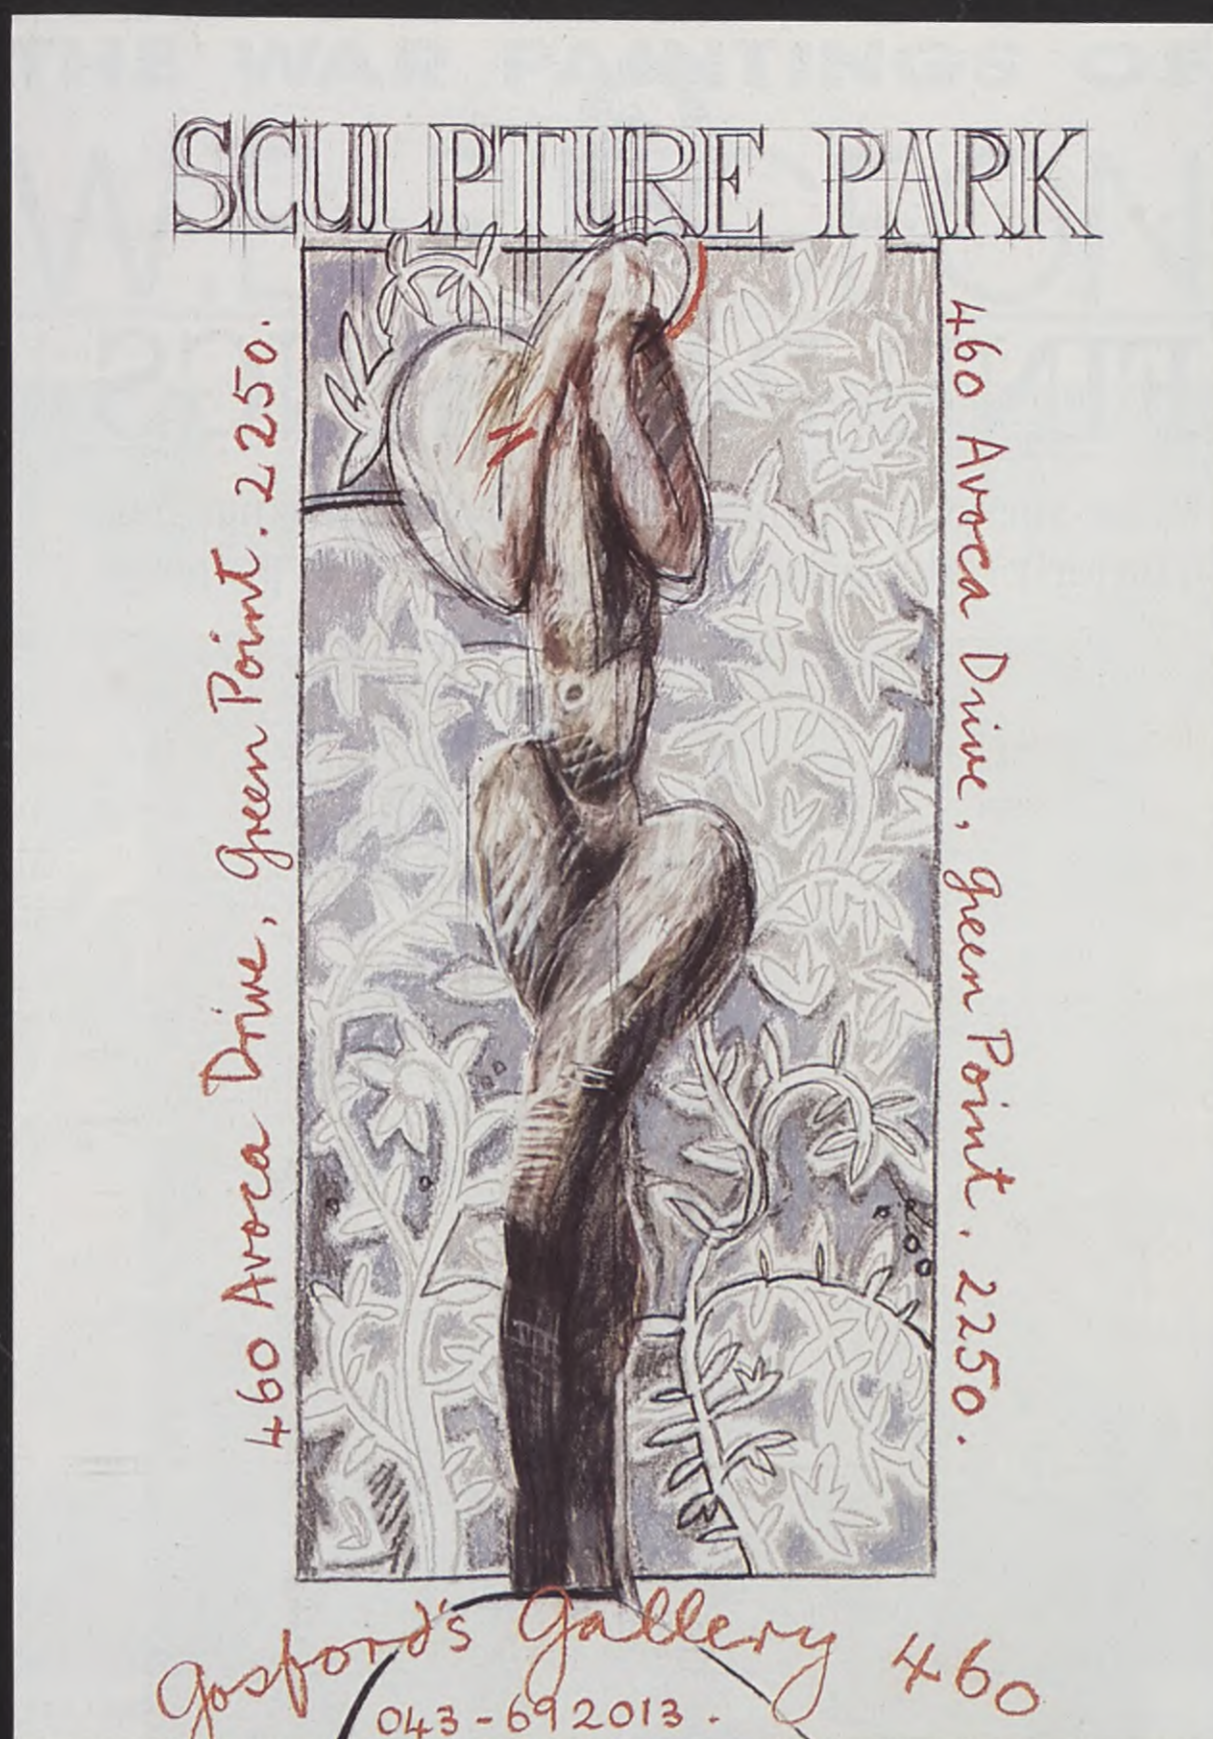 SCULPTURE PARK
460 Avoca Drive, Green Point. 2250.
460 Avoca Drive, Green Point. 2250.
Gosford's Gallery 460
043-692013.